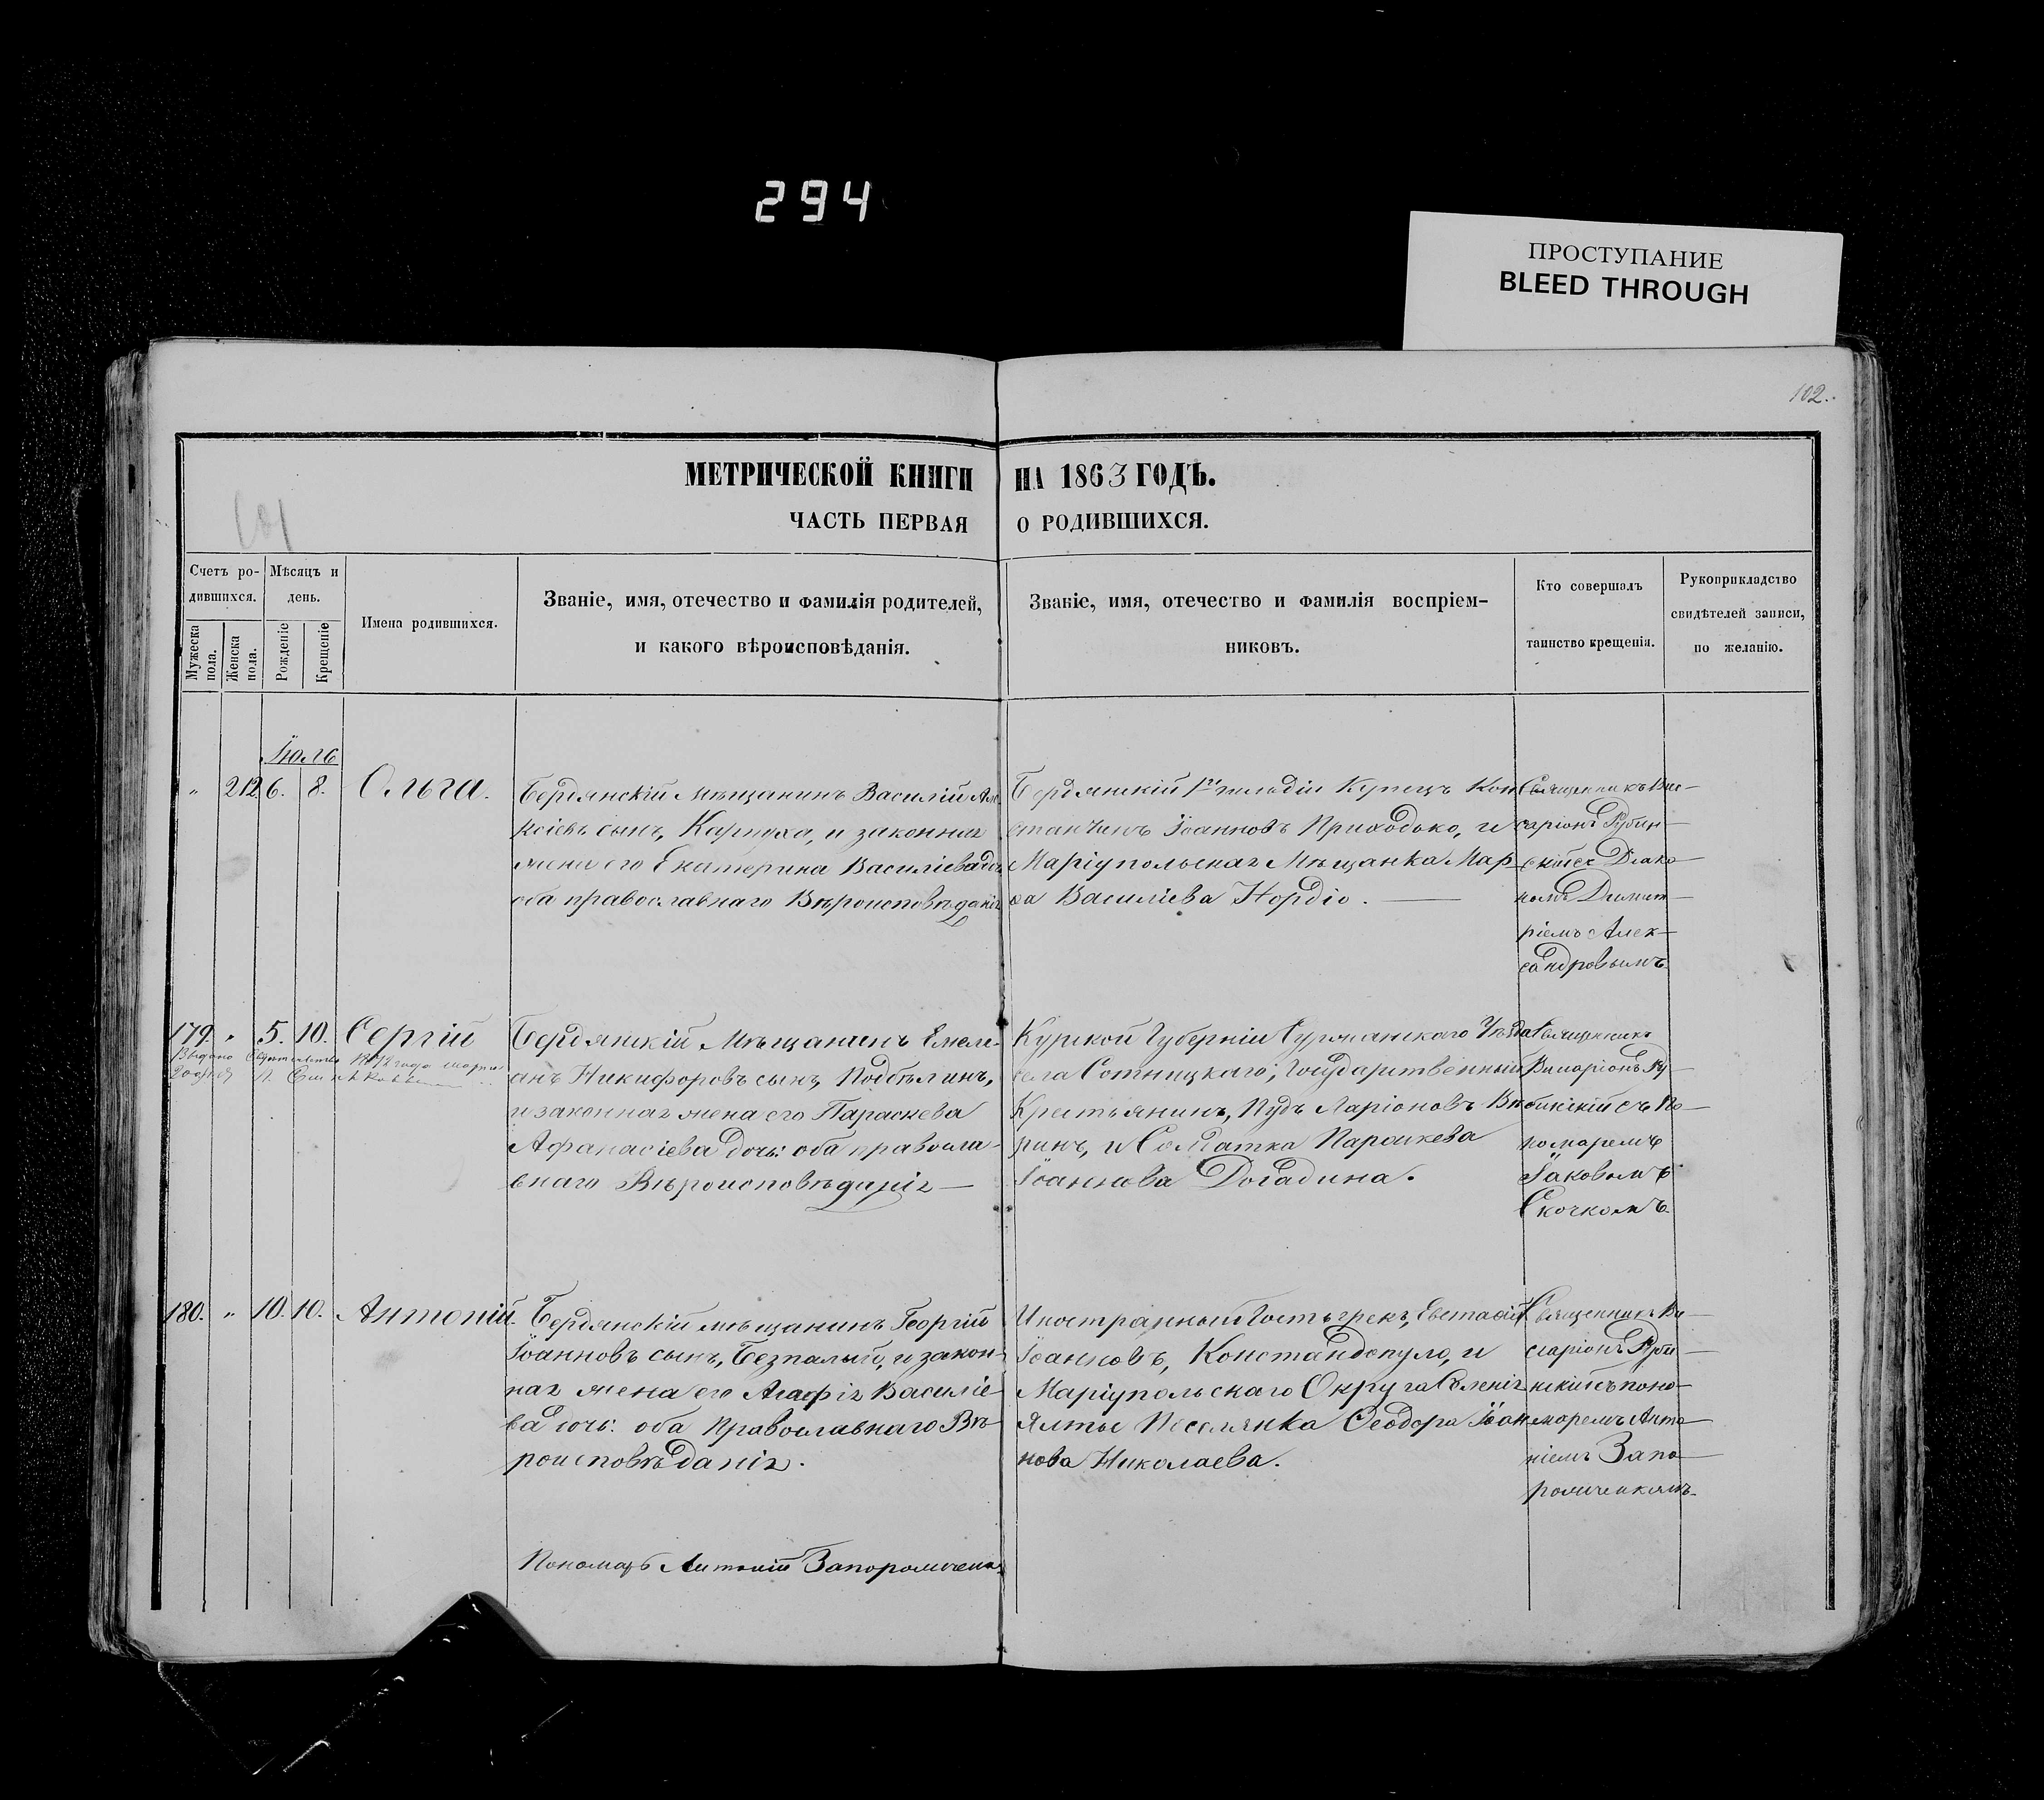 294
ПРОСТУПАНИЕ
BLEED THROUGH
102.
101
МЕТРИЧЕСКОЙ КНИГИ НА 1863 ГОДЪ.
ЧАСТЬ ПЕРВАЯ О РОДИВШИХСЯ.
Счетъ ро-
дившихся.
Мужеска пола.
Женска пола.
Мѣсяцъ и
день.
Рожденіе
Крещеніе
Имена родившихся.
Званіе, имя, отечество и фамилія родителей,
и какого вѣроисповѣданія.
Званіе, имя, отечество и фамилія воспріем-
никовъ.
Кто совершалъ
таинство крещенія.
Рукоприкладство
свидѣтелей записи,
по желанію.
Іюль
" 212. 6. 8. Ольга.
Бердянскій мѣщанинъ Василій Але-
ксѣевъ сынъ, и законная
жена его Екатерина Василіева дочь
оба православнаго Вѣроисповѣданія
Бердянскій 1й гильдіи Купецъ Кон
стантинъ Іоанновъ Приходько, и
Маріупольская Мѣщанка Мар-
ѳа Василіева Нордіо.
Священникъ Вис-
саріонъ Рубин-
скій съ Діако-
номъ Димит-
ріемъ Алек-
сандровымъ
179. " 5. 10. Сергій
Выдано Свидетельство 1878 года марта
Бердянскій Мѣщанинъ Емели-
анъ Никифоровъ сынъ, Подбѣлинъ,
и законная жена его Параскева
Афанасіева дочь: оба правосла-
внаго Вѣроисповѣданія
Курской Губерніи Суджанскаго Уѣзда
села Сотницкаго, Государственный
Крестьянинъ, Пудъ Ларіоновъ
и Солдатка Параскева
Іоаннова Догадина.
Священникъ
Висаріонъ Ру-
бинскій съ По-
номаремъ
Іаковомъ
Скочкомъ.
180. " 10. 10. Антоній.
Бердянскій мѣщанинъ Георгій
Іоанновъ сынъ, Безпалый, и закон-
ная жена его Агафія Василіе-
ва дочь: оба Православнаго Вѣ-
роисповѣданія.
Иностранный Гость грекъ, Евстафій
Іоанновъ, Константопуло, и
Маріупольскаго Округа Селенія
Ялты Поселянка Ѳеодора Іоан
нова Николаева.
Священникъ Ви-
сіаріонъ Руби-
нскій съ поно-
маремъ Анто-
ніемъ Запо-
Пономарь Антоній